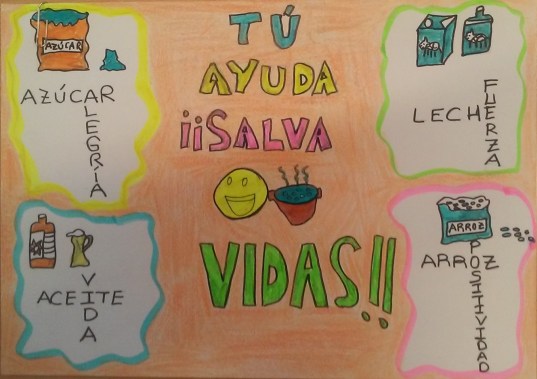 TÚ
AYUDA
¡¡SALVA
VIDAS!!
AZÚCAR
AZÚCAR
ALEGRÍA
LECHE
FUERZA
ACEITE
VIDA
ARROZ
ARROZ
POSITIVIDAD